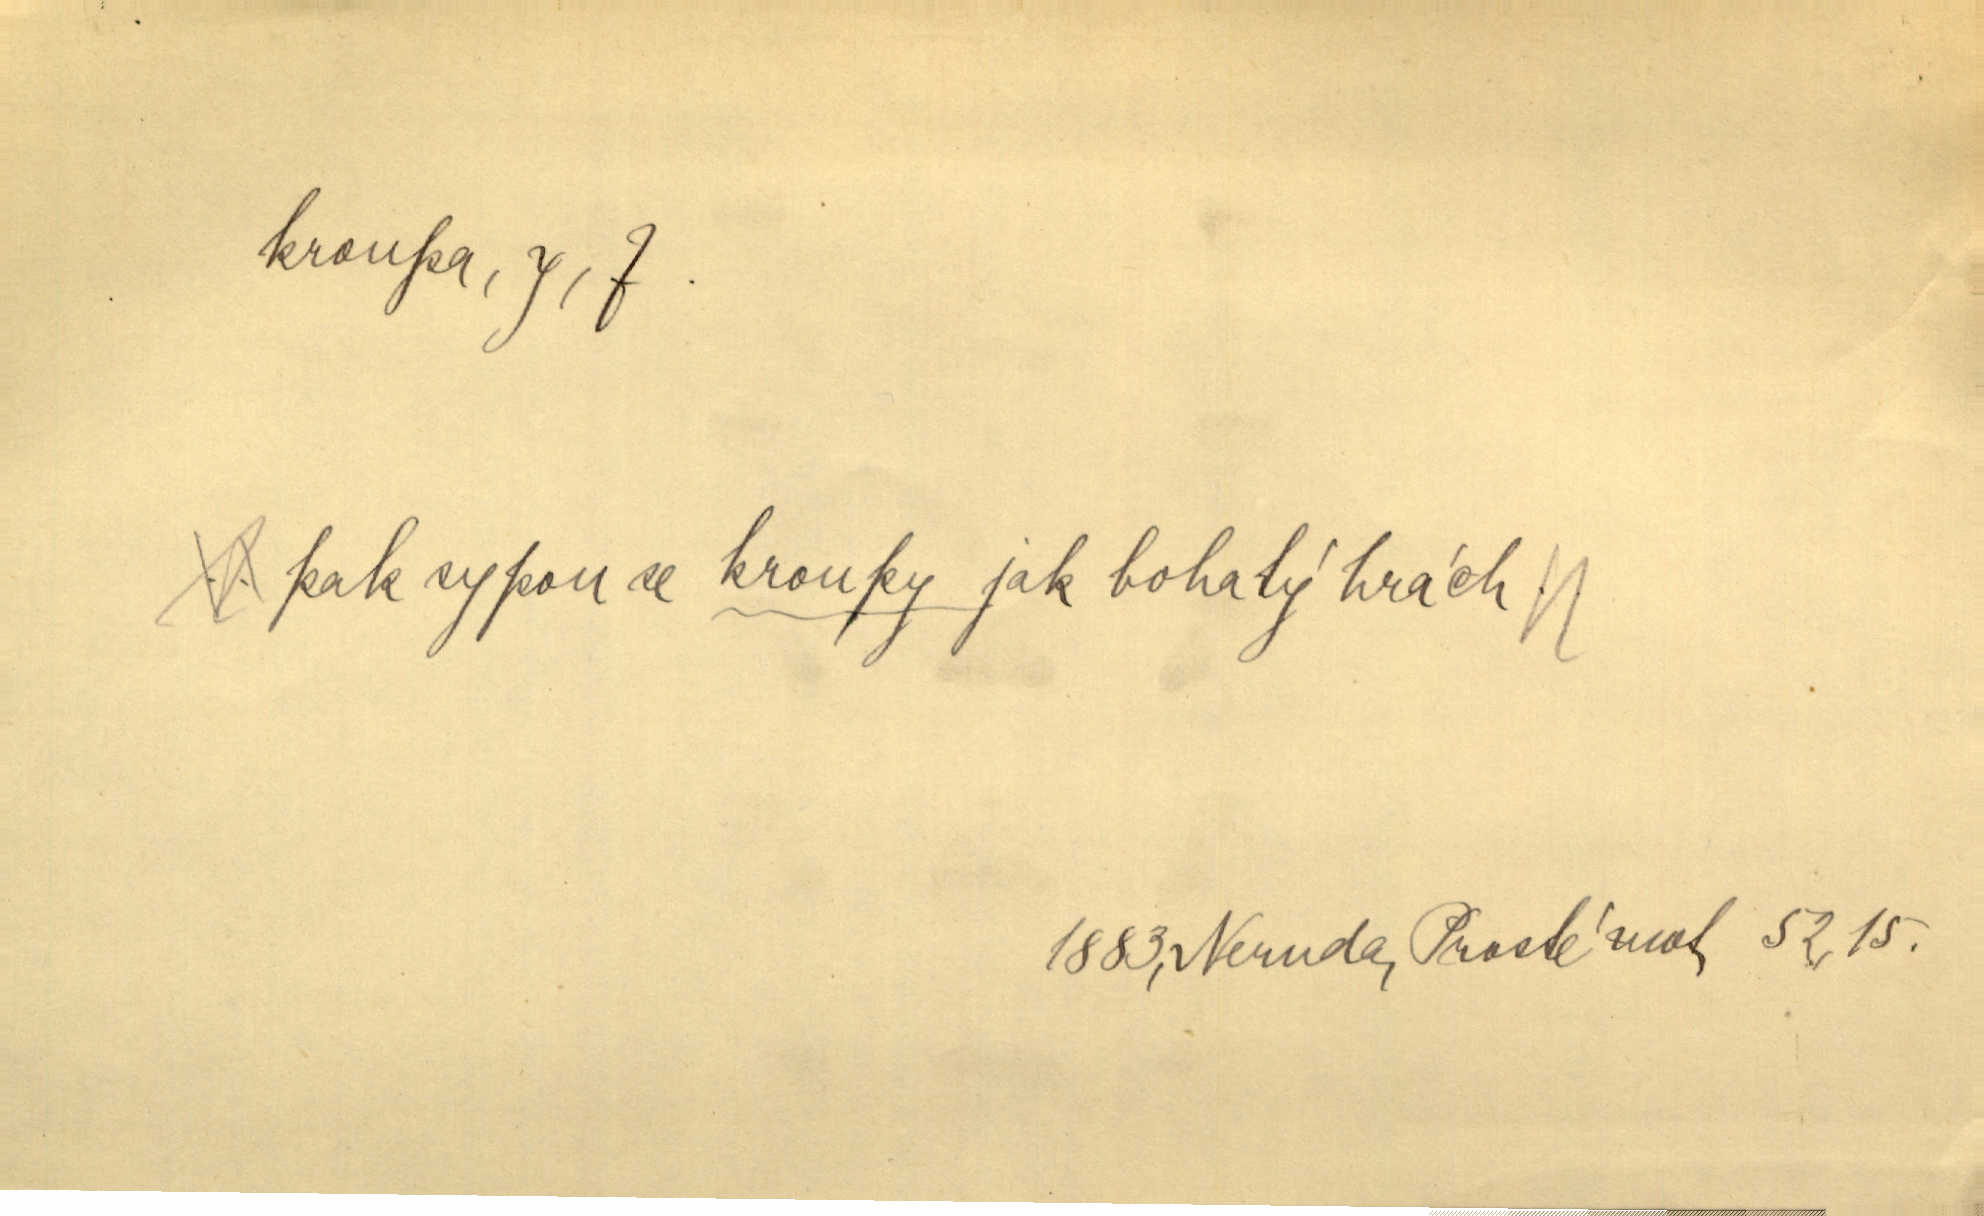 kroupa, y, f.
pak sypou se kroupy jak bohatý hrách
1883, Neruda, Prosté mot, 52, 15.